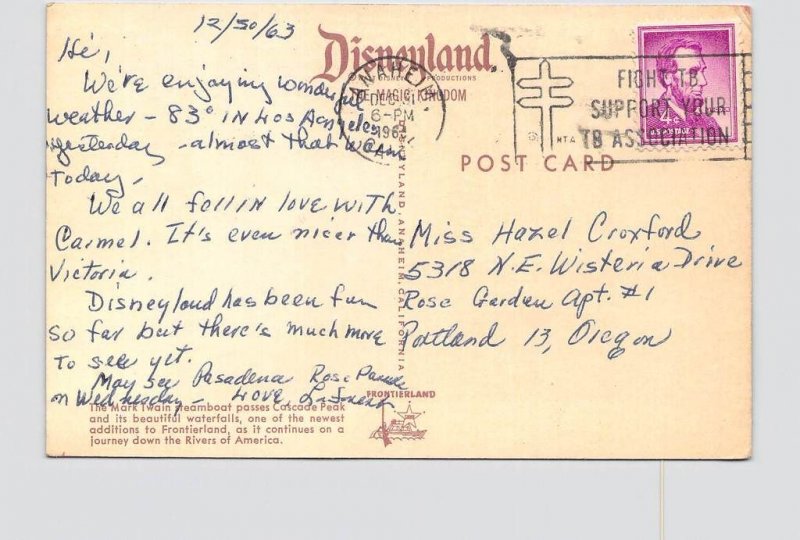 12/30/63
Hi,
We're enjoying wonderful
weather - 83° IN LOS Angeles
yesterday - almost that warm
Today.
We all fell IN love with
Carmel. It's even nicer than
Victoria.
Disneyland has been fun
so far but there's much more
to see yet.
May see Pasadena Rose Parade
on Wednesday - LOVE,
The Mark Twain steamboat passes Cascade Peak
and its beautiful waterfalls, one of the newest
additions to Frontierland, as it continues on a
journey down the Rivers of America.
Disneyland
DISNEY PRODUCTIONS
THE MAGIC KINGDOM
ANAHEIM
DEC 31
6-PM
1963
DISNEYLAND, ANAHEIM, CALIFORNIA
FRONTIERLAND
NTA
FIGHT TB
SUPPORT YOUR
TB ASSOCIATION
4¢
POST CARD
Miss Hazel Croxford
5318 N.E. Wisteria Drive
Rose Garden Apt. #1
Portland 13, Oregon